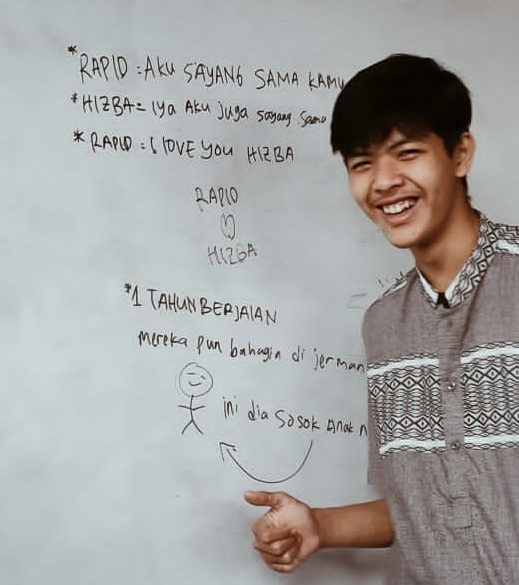 *RAPID : AKU SAYANG SAMA KAMU
*HIZBA = iya AKU juga sayang sama
* RAPID : I LOVE YOU HIZBA
RAPID
♡
HIZBA
*1 TAHUN BERJALAN
mereka pun bahagia di jerman
ini dia sosok Anak n